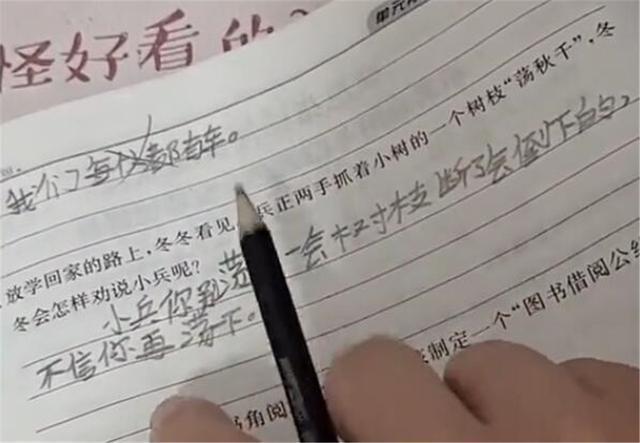 怪好看的
单元
我们每仪都有车。
放学回家的路上,冬冬看见 兵正两手抓着小树的一个树枝“荡秋千”,冬
冬会怎样劝说小兵呢?
小兵你别荡一会树枝断了会倒下自己,
不信你再荡下。
制定一个“图书借阅公约
角阅